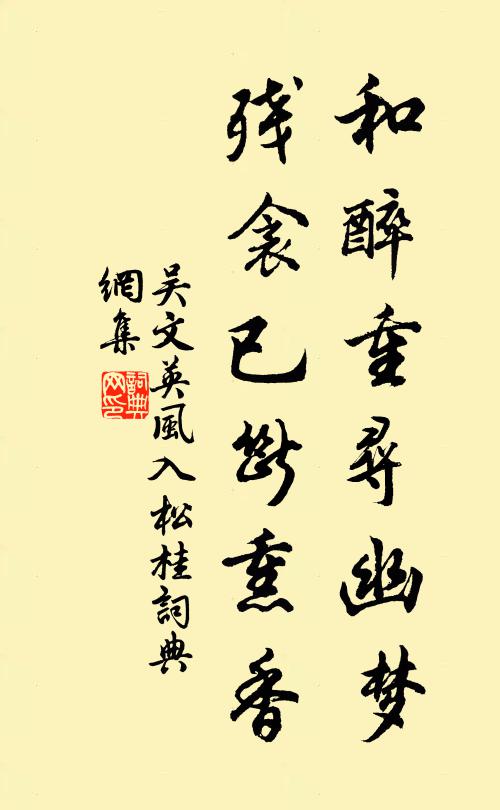 和醉重尋幽梦
残衾已斷熏香
吴文英風入松桂詞典
網集
詞典网印